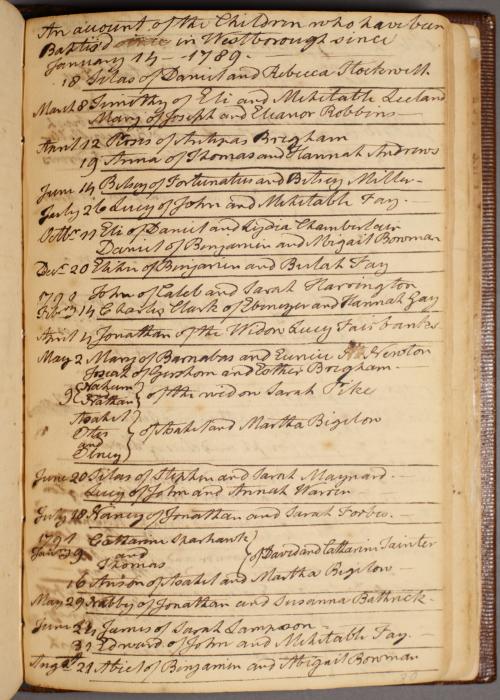 An account of the Children who have been
Baptis'd in Westborough since
January 14 - 1789.
18 Silas of Daniel and Rebecca Stockwell
March 8 Timothy of Eli and Mehitable Leeland
Mary of Joseph and Eleanor Robbins
April 12 Persis of Antipas Brigham
19 Anna of Thomas and Hannah Andrews
June 14 Betsey of Fortunatus and Betsey Miller
July 26 Lucy of John and Mehitable Fay.
Octbr 11 Eli of Daniel and Lydia Chamberlain
Daniel of Benjamin and Abigail Bowman
Decr 20 Elihu of Benjamin and Bulah Fay
1790 John of Caleb and Sarah Harrington
Febry 14 Charles Clark of Ebenezer and Hannah Gay
April 4 Jonathan of the Widow Lucy Fairbanks
May 2 Mary of Barnabas and Eunice Newton
Josiah of Gershom and Esther Brigham.
9 Nahum
Nathan } of the widow Sarah Pike
Asahel
Otis
and
Olney } of Asahel and Martha Bigelow
June 20 Silas of Stephen and Sarah Maynard
Lucy of John and Annah Warren
July 18 Nancy of Jonathan and Sarah Forbes.
1791 Catharine Sparhawk
Janry 9 and
Thomas } of David and Catharine Tainter
16 Anson of Asahel and Martha Bigelow
May 29 Nabby of Jonathan and Susanna Bathrick
June 24 James of Sarah Sampson
Edward of John and Mehitable Fay.
Augst 21 Abiel of Benjamin and Abigail Bowman